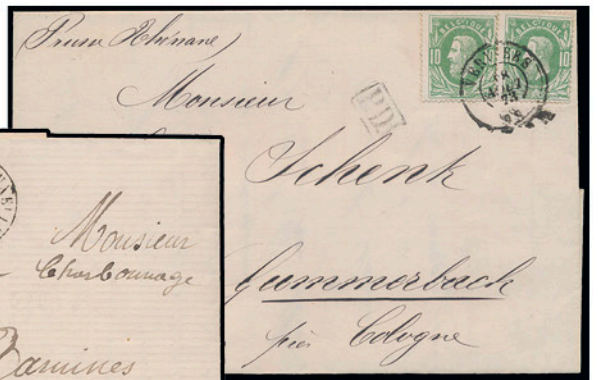 (Prusse Rhénane)
BELGIQUE
10
BELGIQUE
10
VERVIERS
Monsieur
PD
Schenk
Gummerbach
près Cologne
Monsieur
Charbonnage
Tamines